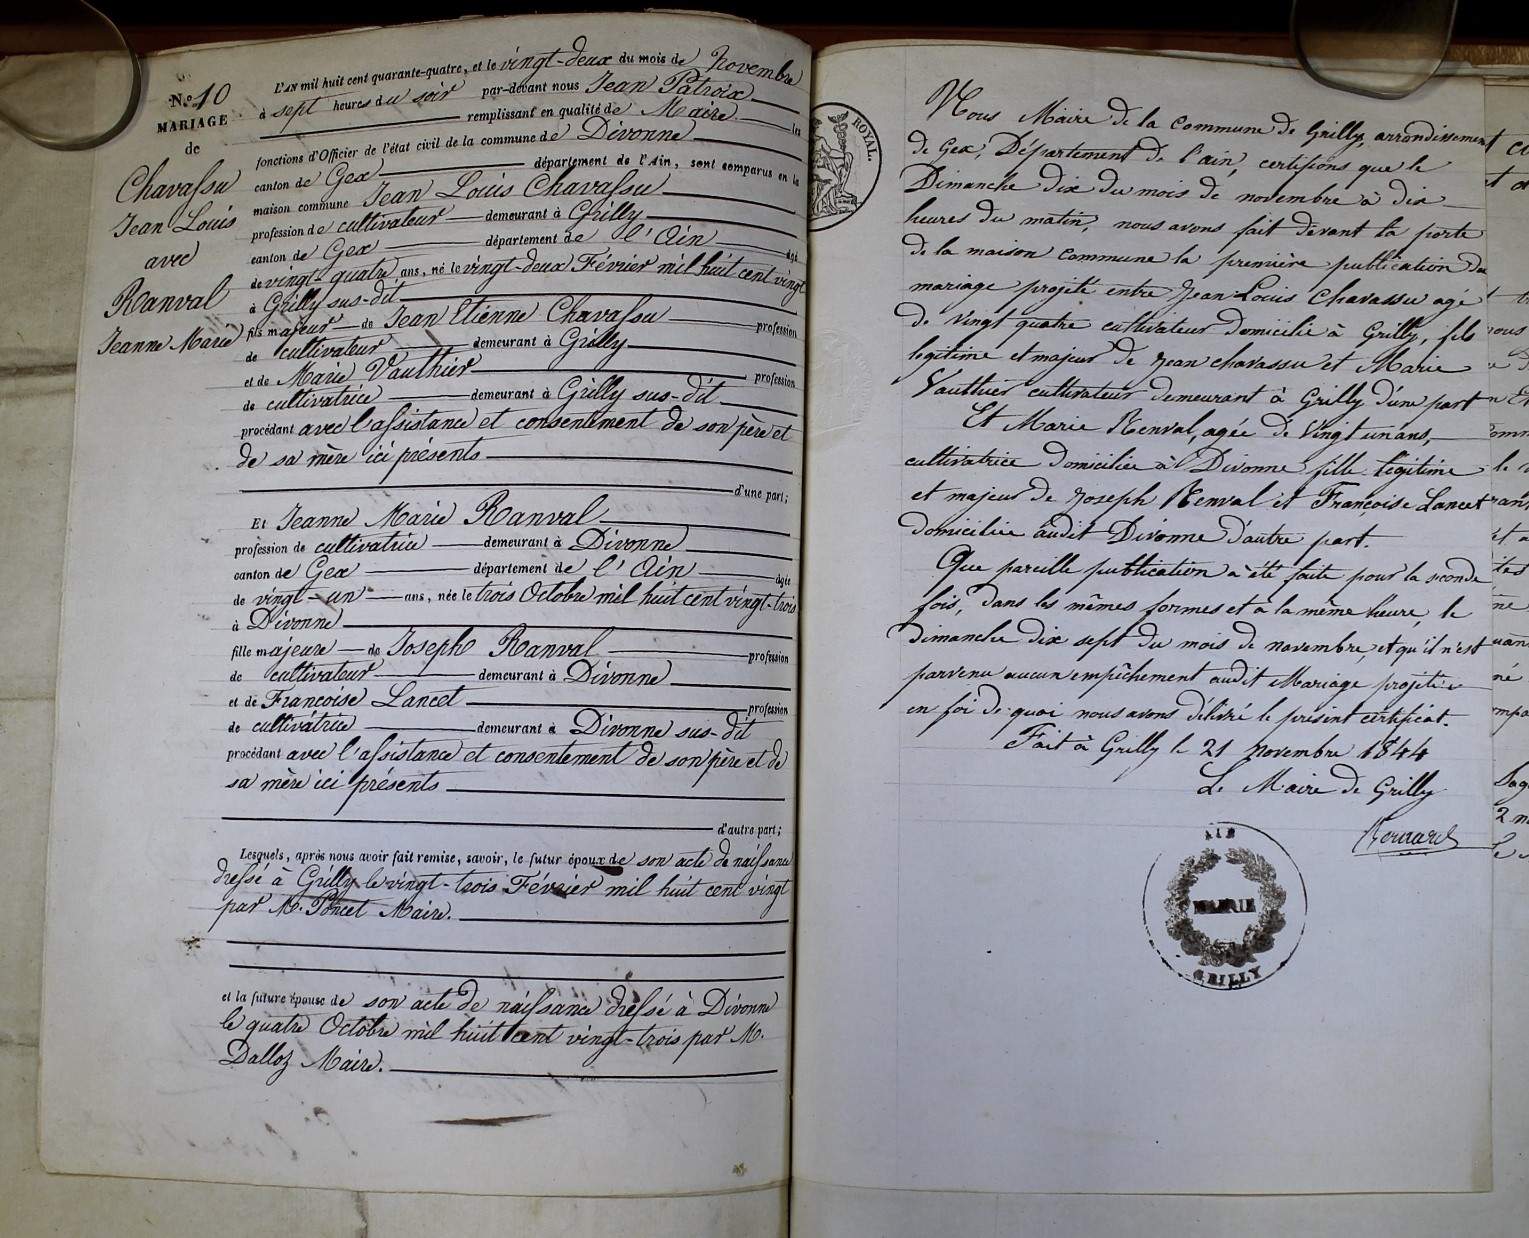 N.º 10
MARIAGE
de
Chavassu
Jean Louis
avec
Ranval
Jeanne Marie
L'AN mil huit cent quarante-quatre, et le vingt-deux du mois de Novembre
à sept heures du soir par-devant nous Jean Patroix
remplissant en qualité de Maire les
fonctions d'Officier de l'état civil de la commune de Divonne
canton de Gex département de l'Ain, sont comparus en la
maison commune Jean Louis Chavassu
profession de cultivateur demeurant à Grilly
canton de Gex département de l'Ain âgé
de vingt-quatre ans, né le vingt-deux Février mil huit cent vingt
à Grilly sus-dit
fils majeur de Jean Etienne Chavassu profession
de cultivateur demeurant à Grilly
et de Marie Vauthier profession
de cultivatrice demeurant à Grilly sus-dit
procédant avec l'assistance et consentement de son père et
de sa mère ici présents
d'une part;
Et Jeanne Marie Ranval
profession de cultivatrice demeurant à Divonne
canton de Gex département de l'Ain âgée
de vingt-un ans, née le trois Octobre mil huit cent vingt-trois
à Divonne
fille majeure de Joseph Ranval profession
de cultivateur demeurant à Divonne
et de Francoise Lancet profession
de cultivatrice demeurant à Divonne sus-dit
procédant avec l'assistance et consentement de son père et de
sa mère ici présents
d'autre part;
Lesquels, après nous avoir fait remise, savoir, le futur époux de son acte de naissance
dressé à Grilly le vingt-trois Février mil huit cent vingt
par M. Poncet Maire.
et la future épouse de son acte de naissance dressé à Divonne
le quatre Octobre mil huit cent vingt-trois par M.
Dalloz Maire.
ROYAL.
Nous Maire de la Commune de Grilly, arrondissement
de Gex, Département de l'ain, certifions que le
Dimanche dix du mois de novembre à dix
heures du matin, nous avons fait devant la porte
de la maison commune la première publication du
mariage projeté entre Jean Louis Chavassu agé
de vingt quatre cultivateur domicilié à Grilly, fils
legitime et majeur de Jean chavassu et Marie
Vauthier cultivateur demeurant à Grilly d'une part
Et Marie Renval, agée de Vingt un ans,
cultivatrice domiciliée à Divonne fille legitime
et majeur de Joseph Renval et Francoise Lancet
domiciliée audit Divonne d'autre part.
Que pareille publication a été faite pour la seconde
fois, dans les mêmes formes et a la même heure, le
dimanche dix sept du mois de novembre, et qu'il n'est
parvenu aucun empêchement audit Mariage projeté
en foi de quoi nous avons délivré le présent certificat.
Fait à Grilly le 21 novembre 1844
Le Maire de Grilly
AIN
MAIRIE
GRILLY